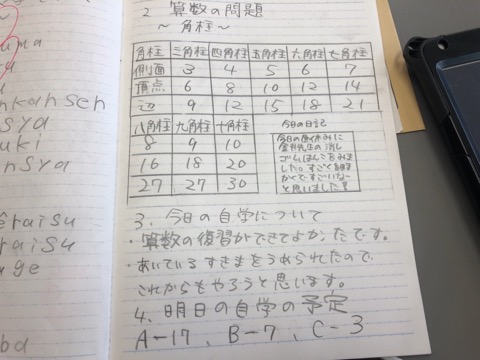 uma
u
nkansen
sya
uki
nsya
eraisu
raisu
uge
bd
2 算数の問題
〜角柱〜
角柱 三角柱 四角柱 五角柱 六角柱 七角柱
側面 3 4 5 6 7
頂点 6 8 10 12 14
辺 9 12 15 18 21
八角柱 九角柱 十角柱
8 9 10
16 18 20
27 27 30
今日の日記
今日の昼休みに
先生の消し
ゴムはんこをみま
した。すごく細
かくてすごいな〜
と思いました
3. 今日の自学について
・算数の復習ができてよかったです。
・あいているすきまをうめられたので
これからもやろうと思います。
4. 明日の自学の予定
A-17、B-7、C-3